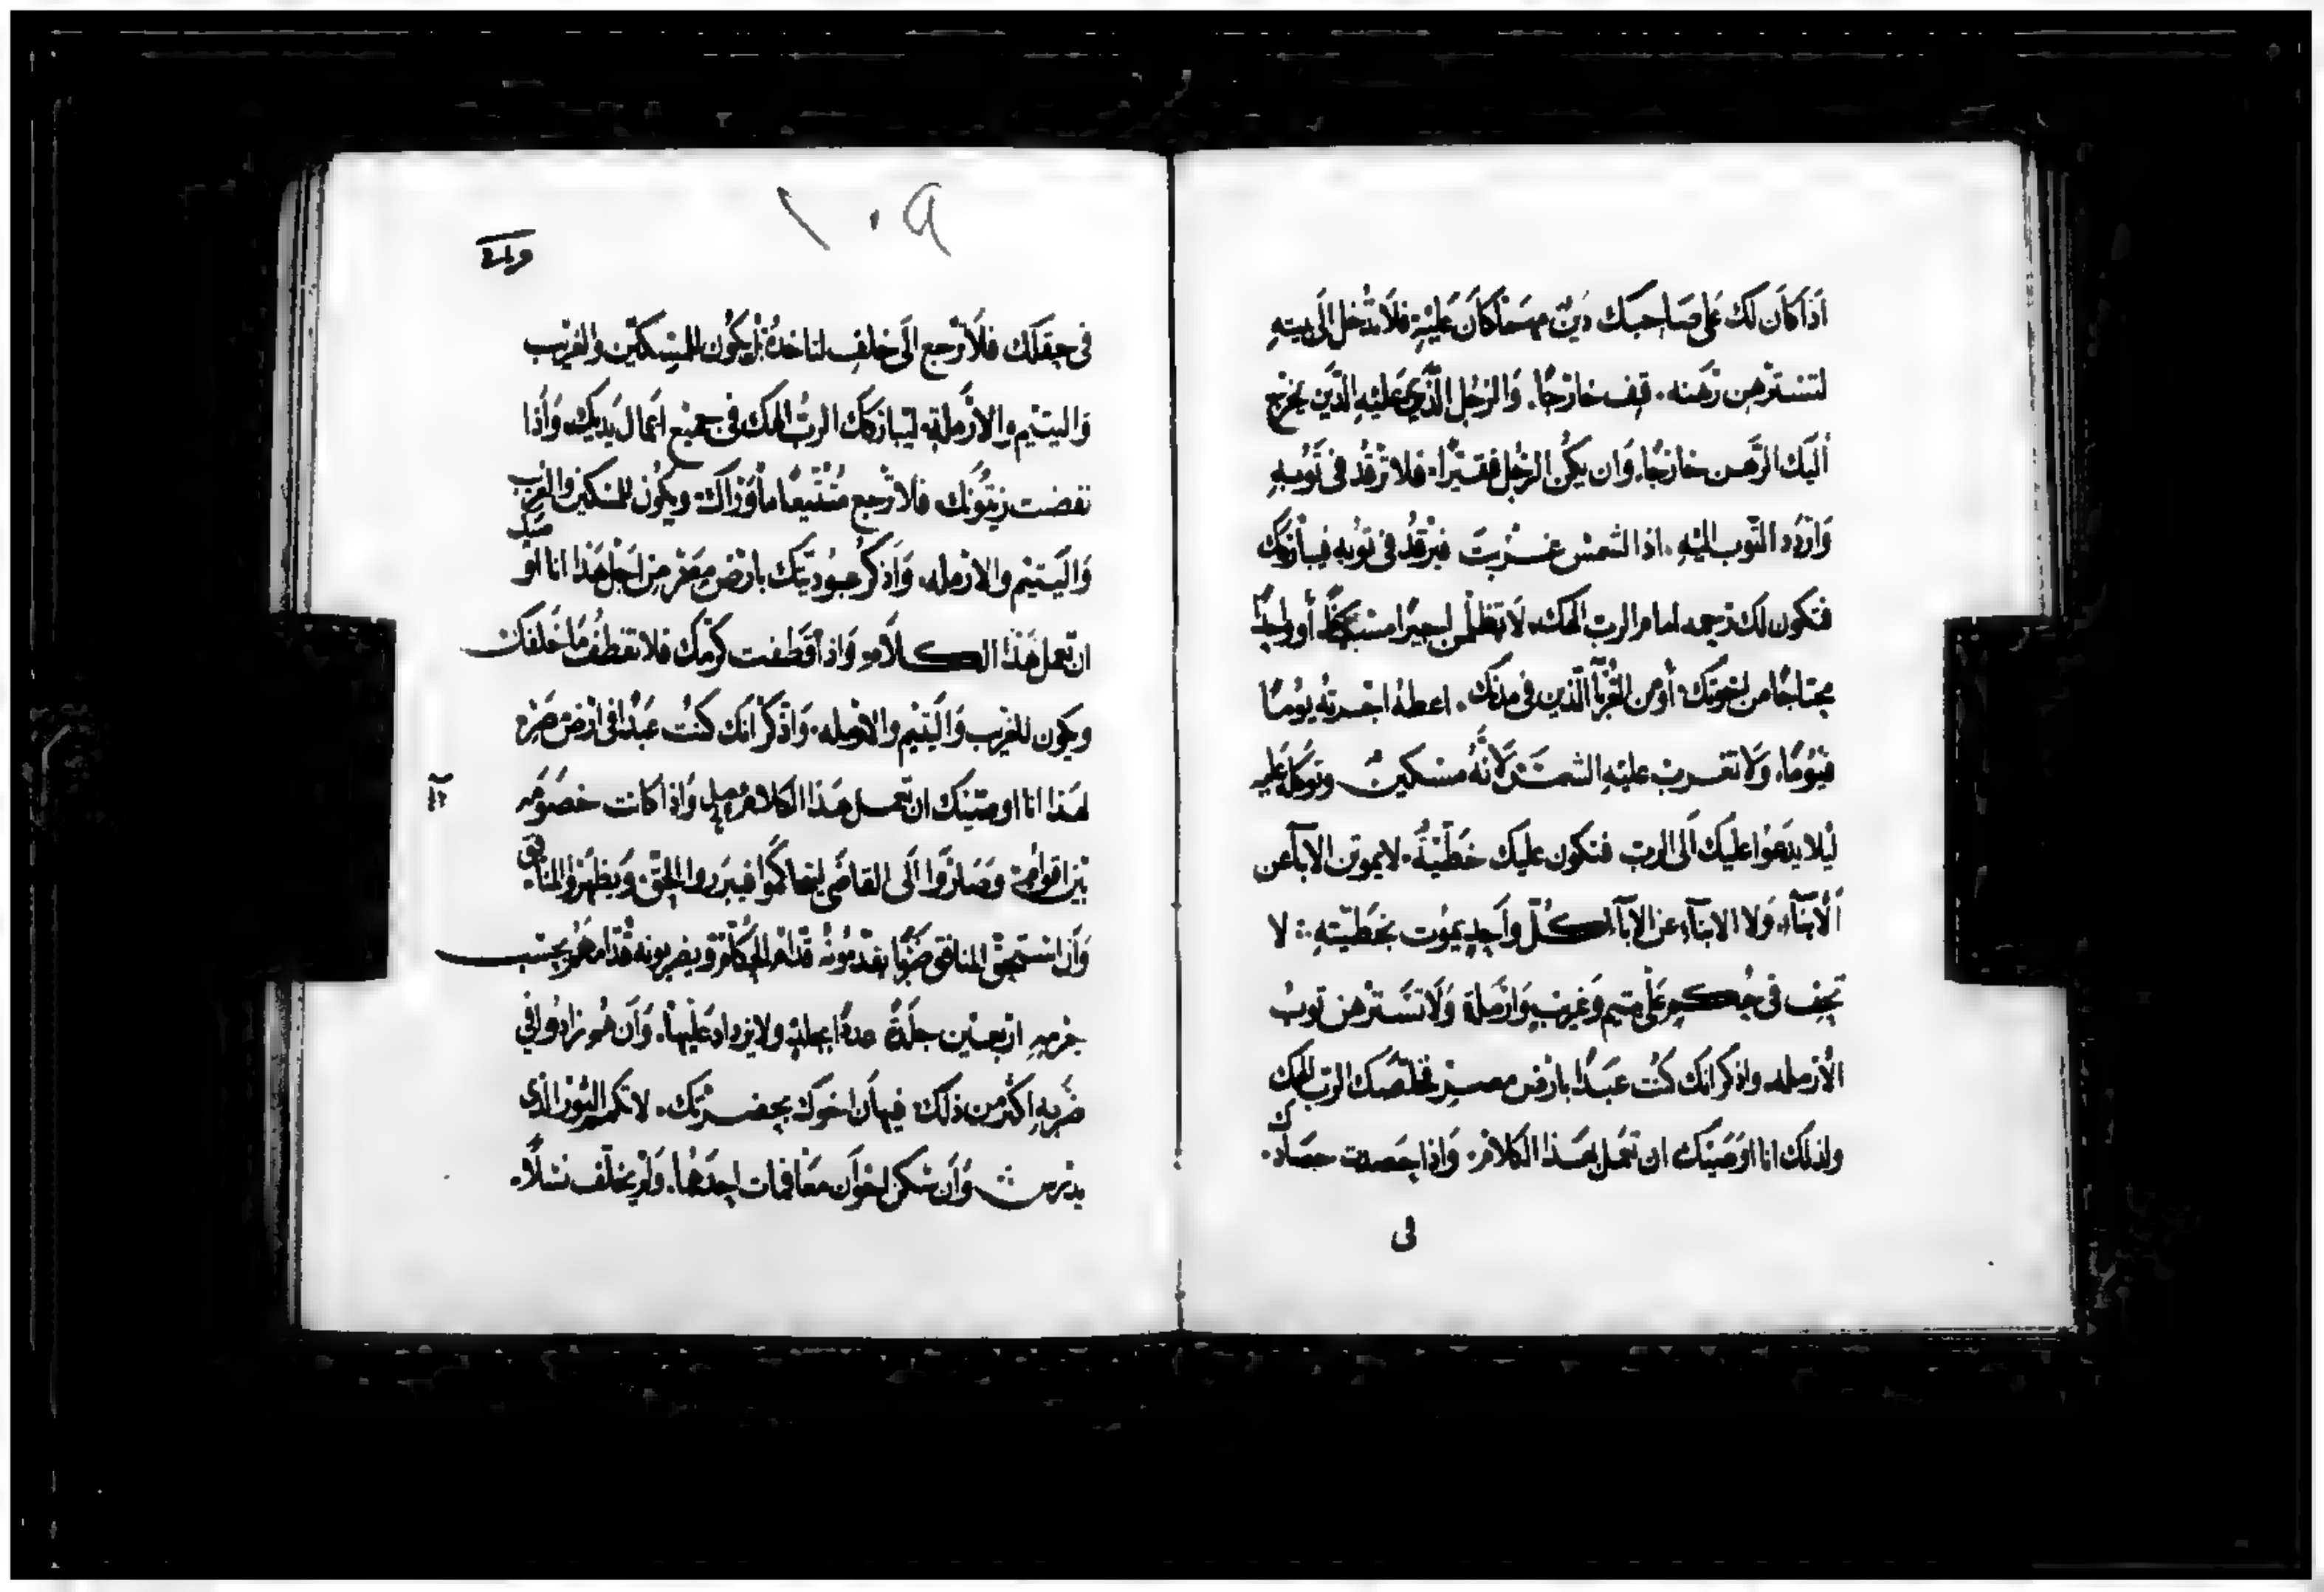 اذا كان لك على صاحبك دين مهما كان عليه فلا تدخل الى بيته
لتسترهن رهنه. قف خارجًا. والرجل الذي عليه الدين يخرج
اليك الرهن خارجًا. وان يكن الرجل فقيرًا. فلا ترقد في ثوبه
واردد الثوب اليه. اذا الشمس غربت فيرقد في ثوبه فيباركك
فتكون لك رحمه امام الرب الهك. لا تظلمن اجيرًا مسكينًا أو واحدًا
محتاجًا من اخوتك. أو من الغربآ الذين في مدنك. اعطه اجرته يومًا
فيومًا. ولا تغرب عليه الشمس لأنه مسكين وتوكله عليه
ليلا يدعوا عليك الى الرب فتكون عليك خطيئة. لا يموتن الابآ عن
الابنآء. ولا الابنآء عن الابآ. كل واحد يموت بخطيته ∴ لا
تحف في حكم على يتيم وغريب وارملة ولا تسترهن ثوب
الارمله. واذكر انك كنت عبدًا بارض مصر فخلصك الرب الهك
ولذلك انا اوصيتك ان تعمل بهذا الكلام. واذا حصدت حصادك.
في
١٠٩
في حقلك فلا ترجع الى خلف لتاخذه بل يكون للمسكين والغريب
واليتيم والارملة. ليباركك الرب الهك في جميع اعمال يديك. واذا
نفضت زيتونك فلا ترجع متتبعًا ما وراك. ويكون للمسكين والغريب
واليتيم والارمله. واذكر عبوديتك بارض مصر من اجل هذا انا اوصيك
ان تعمل هذا الكلام. واذا قطفت كرمك فلا تقطف ما خلفك
ويكون للغريب واليتيم والارمله. واذكر انك كنت عبدًا في ارض مصر
لهذا انا اوصيتك ان تعمل هذا الكلام واذا كانت خصومه
بين اقوام وصاروا الى القاضي ليتحاكموا فيبرروا الحق ويظهروا المنافق
وان استحق المنافق ضربًا يقدمونه قدام الحكام ويضربونه قدامهم بحسب
جرمه اربعين جلدةً عددًا يجلد ولا يزداد عليها. وان هم زادوا في
ضربه اكثر من ذلك. فيهان اخوك بحضرتك. لا تكم الثور الذي
يدرس ∴ وان سكن اخوان معًا فمات احدهما. ولم يخلف نسلًا.